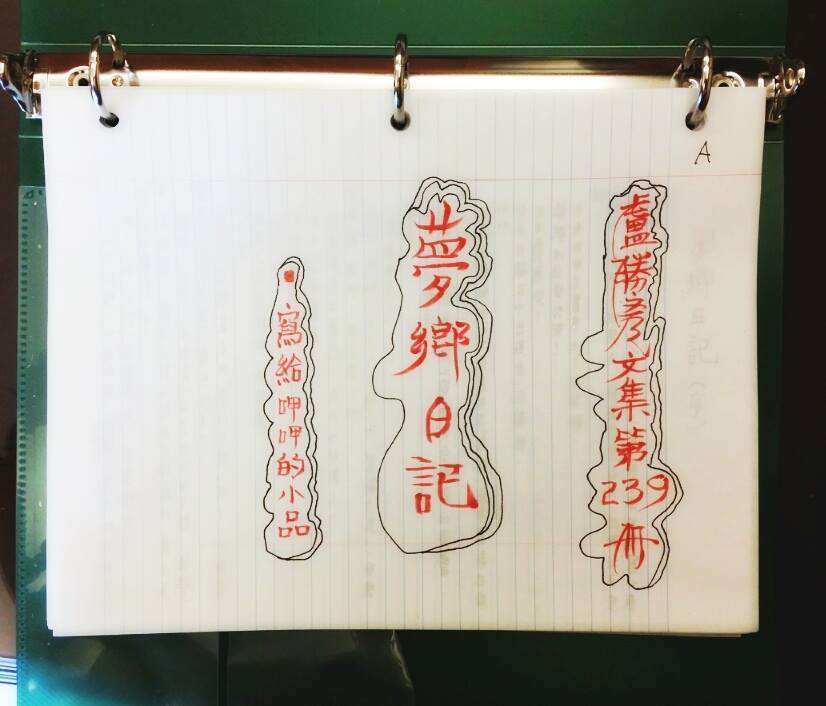 A
盧勝彥文集第239冊
夢鄉日記
•寫給呷呷的小品